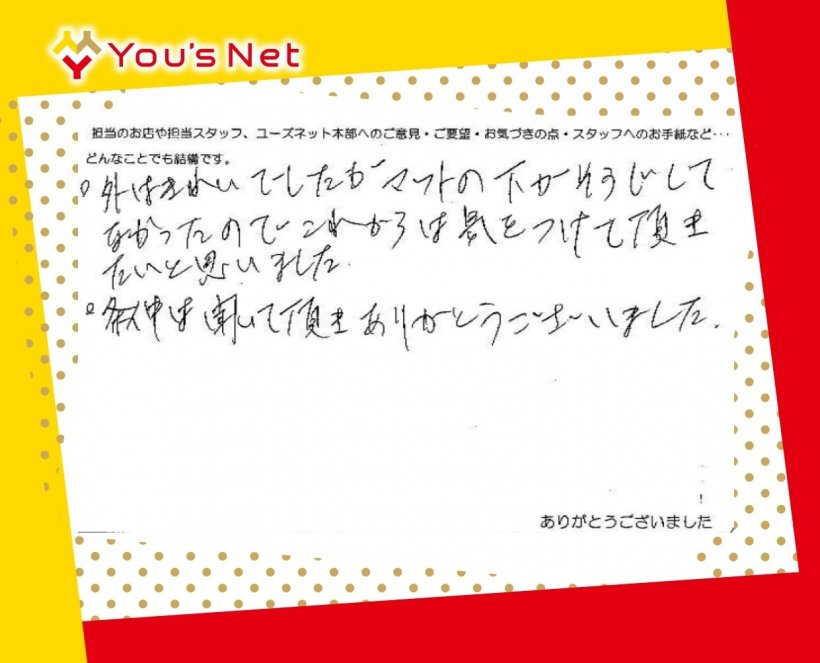 You's Net
担当のお店や担当スタッフ、ユーズネット本部へのご意見・ご要望・お気づきの点・スタッフへのお手紙など･･･
どんなことでも結構です。
外はきれいでしたがマットの下がそうじして
なかったのでこれからは気をつけて頂き
たいと思いました.
は 頂き ありがとうございました.
ありがとうございました